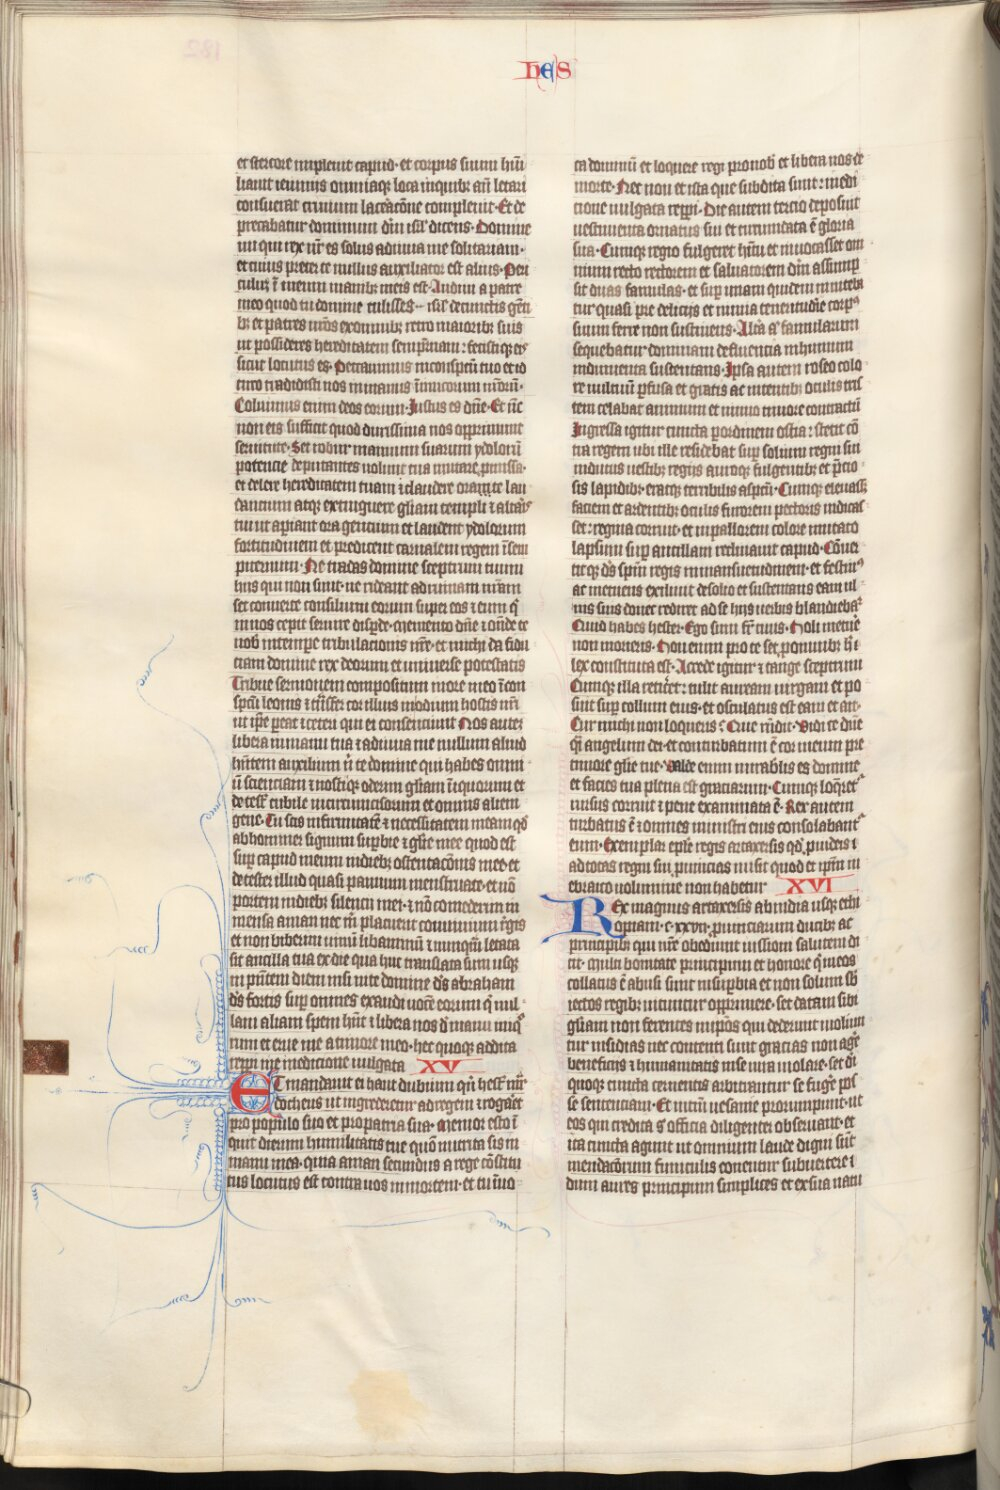 hes
et stercore impleuit capud · et corpus suum hu͞i
liauit ieiuniis omniaq; loca in quib; an͞t letari
consueuerat crinium lacerac͞one compleuit · Et de
precabatur dominum d͞m isr͞l dicens · Domine
mi qui rex n͞r es solus adiuua me solitariam ·
et cuius preter te nullus auxiliator est alius · Peri
culu͞ i͞ meum manib; meis est · Audiui a patre
meo quod tu domine tulisses isr͞l de cunctis gen͞ti
b; et patres n͞ros ex omnib; retro maiorib; suis
ut possideres hereditatem sempit͞nam : fecistiq; eis
sicut locutus es · Peccauimus in conspectu tuo et id
circo tradidisti nos in manus i͞nimicorum n͞rorum ·
Coluimus enim deos eorum · Iustus es dn͞e · Et n͞c
non eis sufficit quod durissima nos opprimunt
seruitute · Set robur manuum suarum ydoloru͞
potencie deputantes uolunt tua mutare p͞missa ·
et delere hereditatem tuam ⁊ claudere ora te lau
dantium atq; extinguere gl͞iam templi ⁊ altaris
tui ut apiant ora gencium et laudent ydolorum
fortitudinem et predicent carnalem regem i͞ sem
piternum · Ne tradas domine sceptrum tuum
hiis qui non sunt · ne rideant ad ruinam n͞ram
set conuerte consilium eorum super eos ⁊ eum q͞i
in nos cepit seuire disperde · Memento dn͞e ⁊ oste͞de te
nob͞ in tempore tribulacionis n͞re · et michi da fidu
ciam domine rex deorum et uniuerse potestatis
Tribue sermonem compositum more meo i͞ con
spectu leonis ⁊ tra͞sfer cor illius in odium hostis n͞ri
ut ip͞e pereat ⁊ ceteri qui ei consenciunt Nos autem
libera in manu tua ⁊ adiuua me nullum aliud
h͞ntem auxilium n͞ te domine qui habes omni
u͞ scienciam ⁊ nostiq; oderim gl͞iam i͞niquorum et
detest͞ cubile incircumcisorum et omnis alieni
gene · Tu scis infirmitate͞ ⁊ necessitatem meam q͞d
abhominer signum superbie ⁊ gl͞ie mee quod est
sup capud meum in dieb; ostentac͞onis mee · et
detester illud quasi pannum menstruate · et no͞
portem in dieb; silencii mei · ⁊ no͞ comederim in
mensa aman nec m͞ placuerit conuiuium r͞gis
et non biberim uinu͞ libaminu͞ ⁊ nu͞nqua͞ letata
sit ancilla tua ex die qua huc translata sum usq;
in p͞ntem diem nisi in te domine d͞s abraham
d͞s fortis sup omnes exaudi uoce͞ eorum q͞i nul
lam aliam spem h͞nt ⁊ libera nos d͞ manu iniq͞
rum et erue me a timore meo · hec quoq; addita
repperi in edicione uulgata XV
Et mandauit ei haut dubium qn͞ hest͞ mar
docheus ut ingrederetur ad regem ⁊ rogaret
pro populo suo et pro patria sua · Memor esto i͞
quit dierum humilitatis tue quo͞m nutrita sis in
manu mea · quia aman secundus a rege co͞stitu
tus locutus est contra uos in mortem · et tu i͞uo
ca dominu͞ et loquere regi pro nob͞ et libera nos de
morte · Nec non et ista que subdita sunt : in edi
cione uulgata repperi · Die autem tercio deposuit
uestimenta ornatus sui et circumdata e͞ gloria
sua · Cumq; regio fulgeret h͞itu et inuocasset om
nium recto rectorem et saluatorem d͞m assump
sit duas famulas · et sup unam quidem innteba
tur quasi pre deliciis et nimia teneritudi͞e corpus
suum ferre non sustinens · Altera a͞t famularum
sequebatur dominam defluencia in humum
indumenta sustentans · Ipsa autem roseo colo
re uultum p͞fusa et gratis ac nitentib; oculis tris
tem celabat animum et nimio timore contractu͞
Ingressa igitur cuncta p ordinem ostia : stetit co͞
tra regem ubi ille residebat sup solium regni sui
indutus uestib; regiis auroq; fulgentib; et p͞cio
sis lapidib; eratq; terribilis aspectu · Cumq; eleuass͞
faciem et ardentib; oculis furorem pectoris indicas
set : regina corruit · et in pallorem colore mutato
lapsum sup ancillam reclinauit capud · Co͞uer
titq; d͞s sp͞m regis in mansuetudinem · et festin͞
ac metuens exiliuit de solio et sustentans eam ul
nis suis donec rediret ad se hiis uerbis blandiebat͞
Quid habes hester · Ego sum fr͞ tuus · Noli metue͞
non morieris · Non enim pro te set p͞ omnib; h͞
lex constituta est · Accede igitur ⁊ tange sceptrum
Cumq; illa reticeret : tulit auream uirgam et po
suit sup collum eius · et osculatus est eam et ait ·
Cur michi non loqueris? Que r͞ndit · Vidi te dn͞e
q͞i angelum dei · et conturbatum e͞ cor meum pre
timore gl͞ie tue · Valde enim mirabilis es domine
et facies tua plena est graciarum · Cumq; loq͞ret͞
rursus corruit ⁊ pene exanimata e͞ · Rex autem
turbatus e͞ ⁊ omnes ministri eius consolabant͞
eam · Exemplar epl͞e regis artaxersis q͞d p͞ uideris i͞
ad totas regni sui p͞uincias misit quod et ip͞m in
ebraico uolumine non habetur XVI
Rex magnus artaxersis ab india usq; ethi
opiam · c · xxvii · p͞uinciarum ducib; ac
principib; qui n͞re obediunt iussioni salutem di
cit · Multi bonitate principum et honore q͞i in eos
collatus e͞ abusi sunt in sup͞biam et non solum sb͞
iectos regib; nituntur opprimere · set datam sibi
gl͞iam non ferentes in ip͞os qui dederunt moliun
tur insidias nec contenti sunt gracias non age͞
beneficiis ⁊ humanitatis in se iura uiolare · set d͞i
quoq; cuncta cernentis arbitrantur se fuge͞ pos
se sentenciam · Et in tm͞ uesanie prorumpunt · ut
eos qui credita s͞ officia diligenter obseruant · et
ita cuncta agunt ut omnium laude digni sint
mendacorum funiculis conentur subuertere ·
dum aures principum simplices et ex sua natu